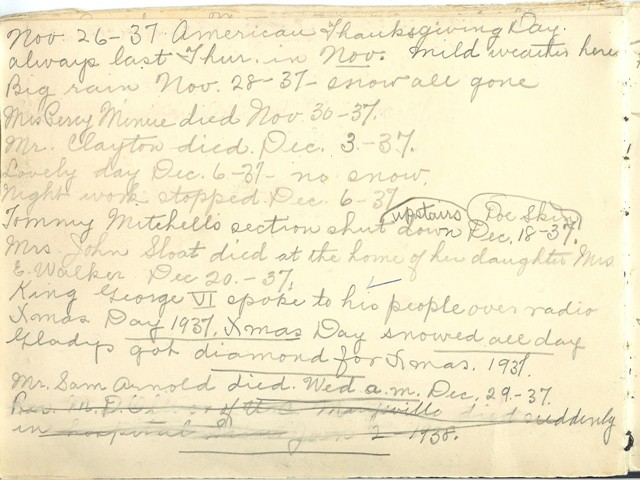 Nov. 26-37. American Thanksgiving Day.
always last Thur. in Nov. mild weather here
Big rain Nov. 28-37- snow all gone
Mrs Percy Minue died Nov. 30-37.
Mr. Clayton died. Dec. 3.-37.
Lovely day Dec. 6-37- no snow.
Night work stopped. Dec. 6-37
upstairs Doe Skin
Tommy Mitchell's section shut down Dec. 18-37.
Mrs. John Sloat died at the home of her daughter Mrs
E. Walker Dec 20.-37.
King George VI spoke to his people over radio
Xmas Day 1937. Xmas Day snowed all day
Gladys got diamond for Xmas. 1937.
Mr. Sam Arnold died. Wed a.m. Dec. 29.-37.
Rev. M. D. of Marysville died suddenly
in hospital Jan 2 1938.